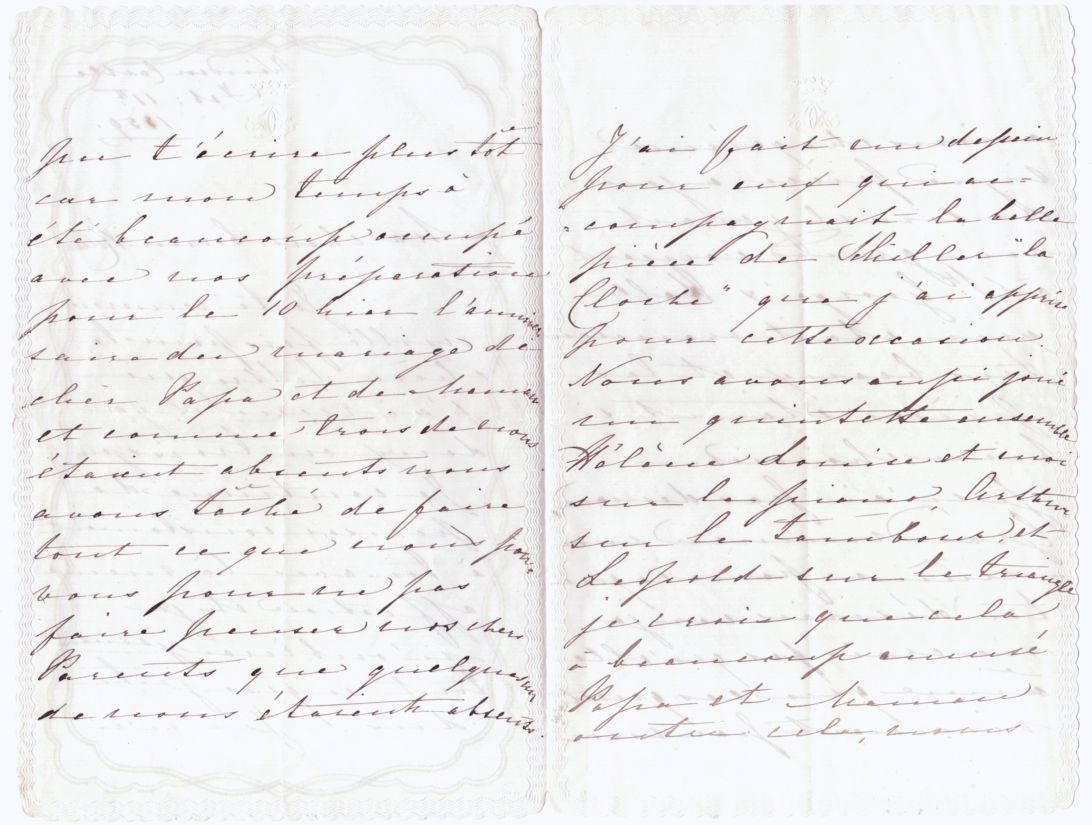 pu t'écrire plus tôt
car mon temps à
été beaucoup occupé
avec nos préparations
pour le 10 hier l'anniver
saire du mariage de
cher Papa et de Maman
et comme trois de nous
étaient absents nous
avons tâché de faire
tout ce que nous pou-
vons pour ne pas
faire penser nos chers
Parents que quelques un
de nous étaient absents.
J'ai fait un dessin
pour eux qui ac=
"compagnait la belle
pièce de Schiller "la
Cloche" que j'ai apprise
pour cette occasion.
Nous avons aussi joué
un quintette ensemble
Hélène Louise et moi
sur le piano, Arthur
sur le tambour, et
Leopold sur le triangle
je crois que cela
a beaucoup amusé
Papa et Maman
outre cela, nous